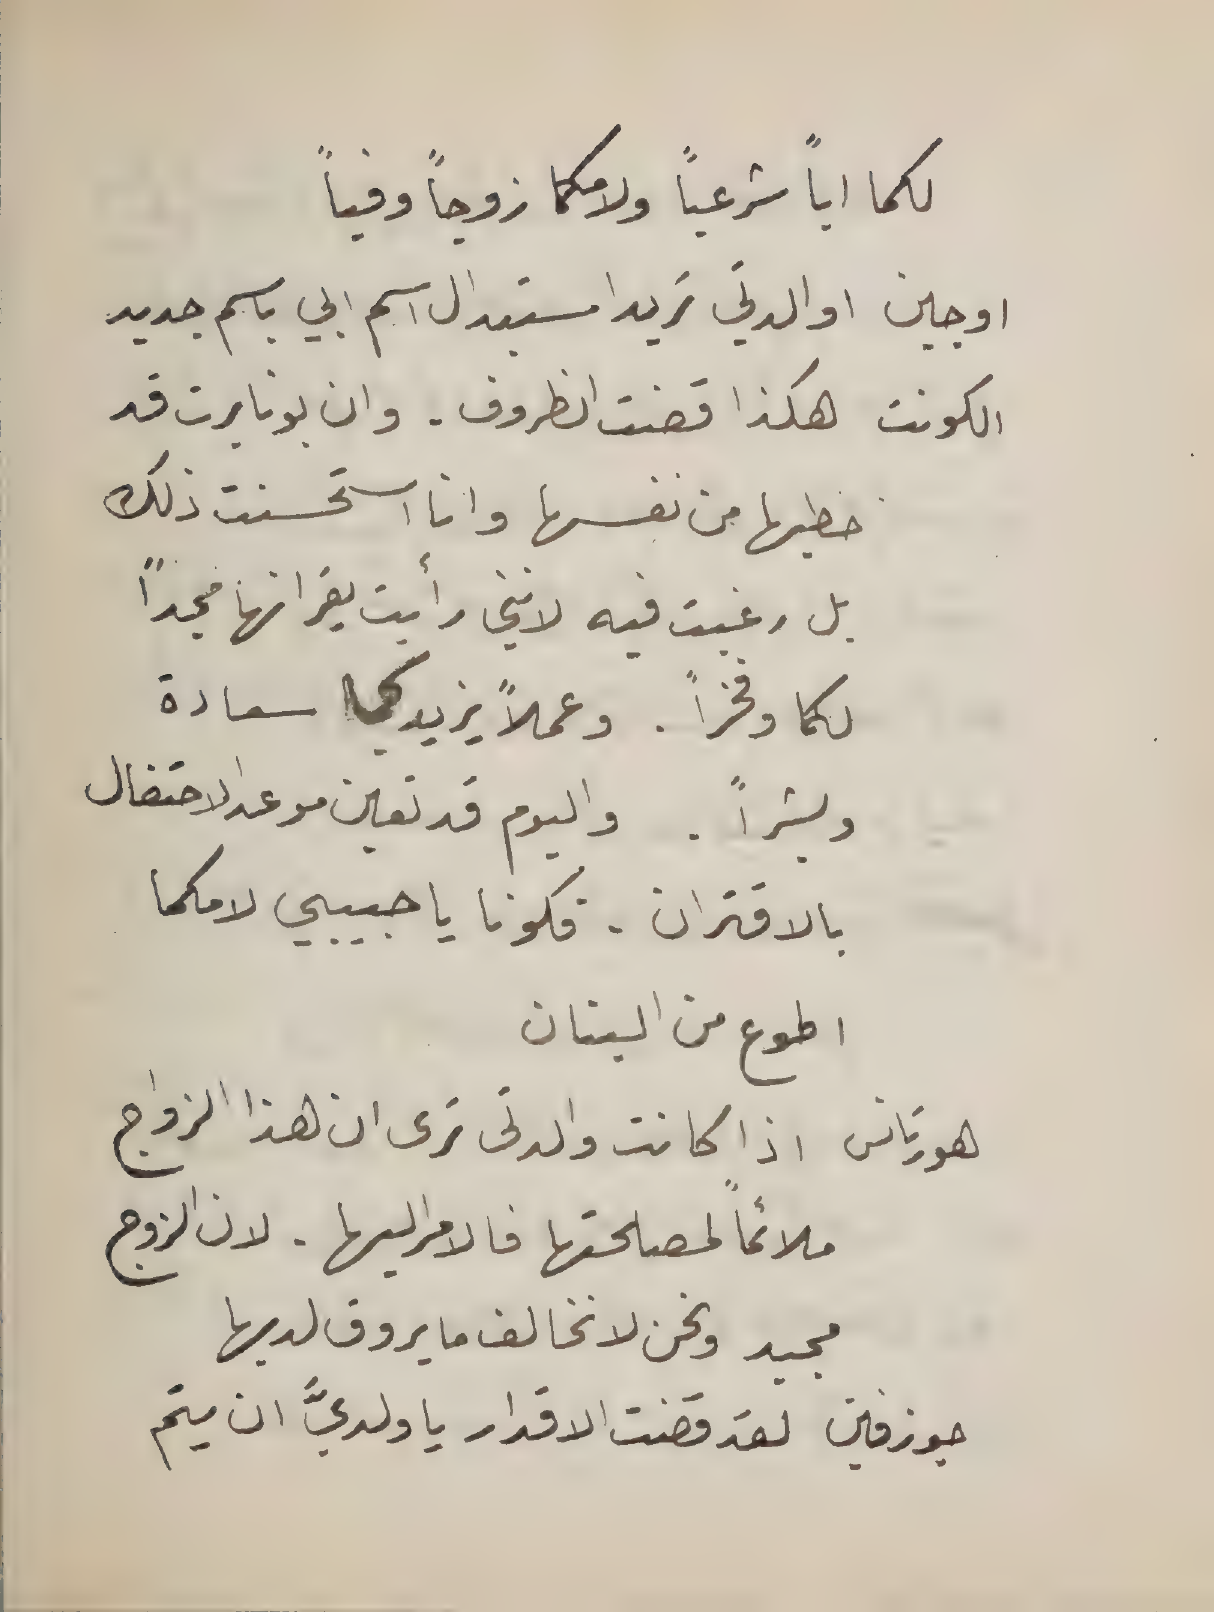 لكما اباً شرعياً ولامكما زوجاً وفياً
اوجين اوالدتي تريد استبدال اسم ابي باسم جديد
الكونت هكذا قضت الظروف. وان بونابرت قد
خطبها من نفسها وانا استحسنت ذلك
بل رغبت فيه لانني رأيت بقرانها مجداً
لكما وفخراً. وعملاً يزيدكما سعادة
وبشراً. واليوم قد تعين موعد الاحتفال
بالاقتران. فكونا يا حبيبي لامكما
اطوع من البنان
هورتانس اذا كانت والدتي ترى ان هذا الزواج
ملائماً لمصلحتها فالامر اليها. لان الزوج
مجيد ونحن لا نخالف ما يروق لديها
جوزفين لقد قضت الاقدار يا ولديَّ ان يتم